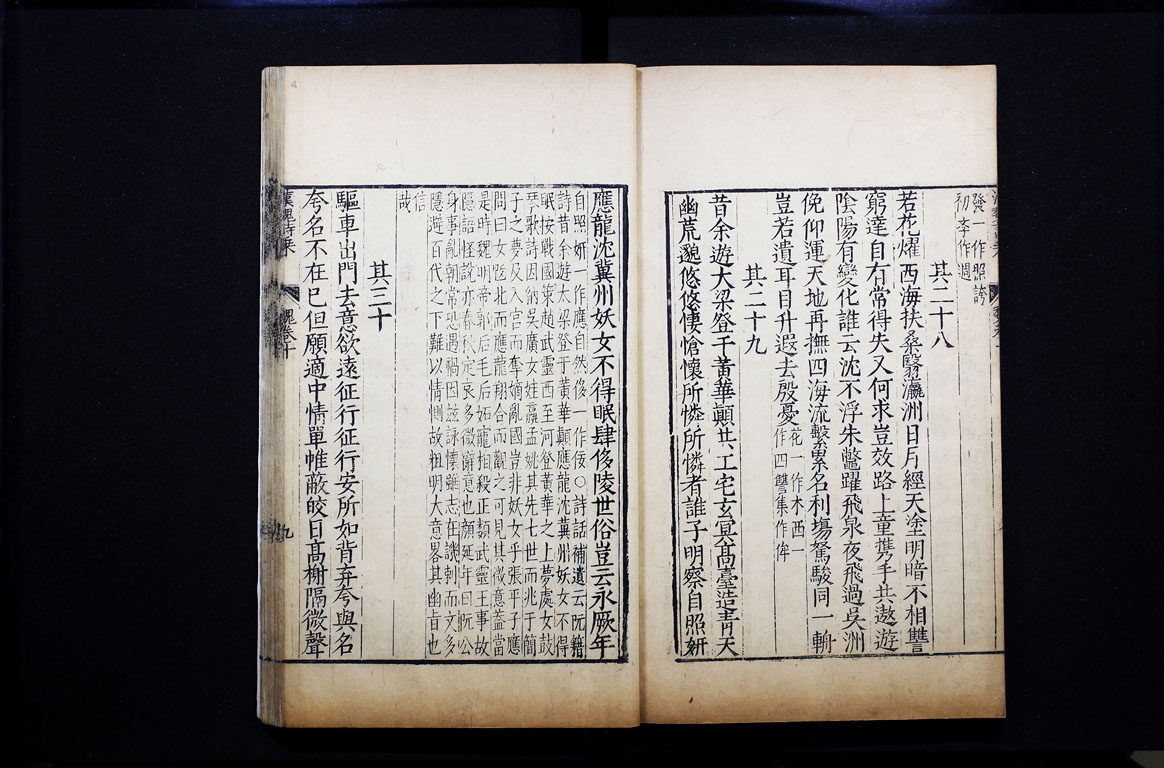 發一作照誇
初李作週
其二十八
若花燿西海扶桑翳瀛洲日月經天塗明暗不相讐
窮達自有常得失又何求豈效路上童攜手共遨遊
陰陽有變化誰云沈不浮朱鼈躍飛泉夜飛過吳洲
俛仰運天地再撫四海流繫累名利塲駑駿同一輈
豈若遺耳目升遐去殷憂花一作木西一
作四讐集作侔
其二十九
昔余遊大梁登于黃華顛共工宅玄冥高臺造青天
幽荒邈悠悠悽愴懷所憐所憐者誰子明察自照妍
應龍沈冀州妖女不得眠肆侈陵世俗豈云永厥年
自照妍一作應自然侈一作佞○詩話補遺云阮籍
詩昔余遊太梁登于黃華顛應龍沈冀州妖女不得
眠按戰國策趙武靈西至河登黃華之上夢處女鼓
琴歌詩因納吳廣女娃嬴孟姚其先七世而兆于簡
子之夢及入宮而奪嫡亂國豈非妖女乎張平子應
問曰女魃北而應龍翔合而觀之可見其微意蓋當
是時魏明帝郭后毛后妬寵相殺正類武靈王事故
隱語怪說亦春秋定哀多微辭意也顏延年曰阮公
身事亂朝常恐遇禍因茲詠懷雖志在譏刺而文多
隱避百代之下難以情測故粗明大意畧其幽旨也
信
哉
其三十
驅車出門去意欲遠征行征行安所如背弃夸與名
夸名不在巳但願適中情單帷蔽皎日高榭隔微聲
漢魏詩乘
魏卷十
九